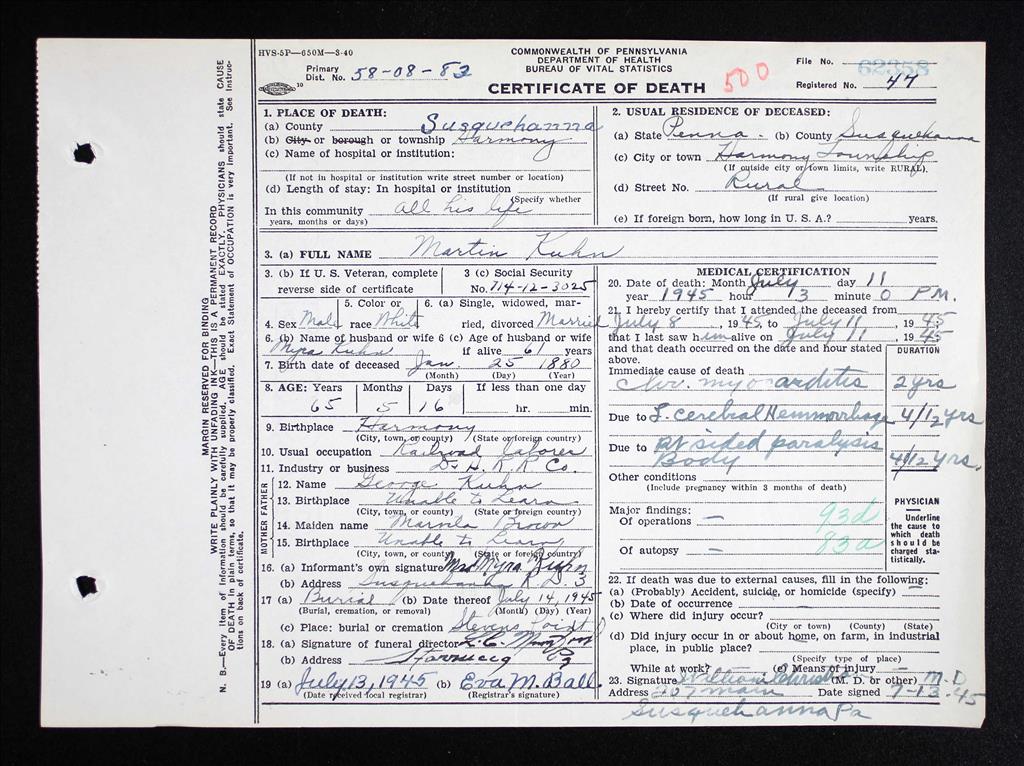 HVS-5P—650M—3-40
COMMONWEALTH OF PENNSYLVANIA
DEPARTMENT OF HEALTH
BUREAU OF VITAL STATISTICS
CERTIFICATE OF DEATH
Primary Dist. No. 58-08-83
500
File No. 62358
Registered No. 47
MARGIN RESERVED FOR BINDING
WRITE PLAINLY WITH UNFADING INK—THIS IS A PERMANENT RECORD
N. B.—Every item of information should be carefully supplied. AGE should be stated EXACTLY. PHYSICIANS should state CAUSE
OF DEATH in plain terms, so that it may be properly classified. Exact Statement of OCCUPATION is very important. See Instruc-
tions on back of certificate.
1. PLACE OF DEATH:
(a) County Susquehanna
(b) City or borough or township Harmony
(c) Name of hospital or institution:
(If not in hospital or institution write street number or location)
(d) Length of stay: In hospital or institution
(Specify whether
In this community all his life
years, months or days)
2. USUAL RESIDENCE OF DECEASED:
(a) State Penna. (b) County Susquehanna
(c) City or town Harmony Township
(If outside city or town limits, write RURAL)
(d) Street No. Rural
(If rural give location)
(e) If foreign born, how long in U. S. A.? years.
3. (a) FULL NAME Martin Kuhn
3. (b) If U. S. Veteran, complete reverse side of certificate
3 (c) Social Security No. 714-12-3025
4. Sex Male
5. Color or race White
6. (a) Single, widowed, married, divorced Married
6. (b) Name of husband or wife Myra Kuhn
6 (c) Age of husband or wife if alive 61 years
7. Birth date of deceased Jan. 25 1880
(Month) (Day) (Year)
8. AGE: Years Months Days If less than one day
65 5 16 hr. min.
9. Birthplace Harmony
(City, town, or county) (State or foreign country)
10. Usual occupation Railroad Laborer
11. Industry or business D & H. R. R. Co.
FATHER
12. Name George Kuhn
13. Birthplace Unable to Learn
(City, town, or county) (State or foreign country)
MOTHER
14. Maiden name Brown
15. Birthplace Unable to Learn
(City, town, or county) (State or foreign country)
16. (a) Informant's own signature Mrs Myra
(b) Address Susquehanna R. D. 3
17 (a) Burial (b) Date thereof July 14, 1945
(Burial, cremation, or removal) (Month) (Day) (Year)
(c) Place: burial or cremation Stevens Point
18. (a) Signature of funeral director
(b) Address Starrucca Pa
19 (a) July 13, 1945 (b) Eva M. Ball.
(Date received local registrar) (Registrar's signature)
MEDICAL CERTIFICATION
20. Date of death: Month July day 11
year 1945 hour 3 minute 0 P.M.
21. I hereby certify that I attended the deceased from
July 8, 1945, to July 11, 1945
that I last saw him alive on July 11, 1945
and that death occurred on the date and hour stated above.
DURATION
Immediate cause of death
Chr. myocarditis 2 yrs
Due to L. cerebral Hemmorrhage 4/12 yrs
Due to Rt sided paralysis
Body 4/12 yrs.
Other conditions
(Include pregnancy within 3 months of death)
Major findings:
Of operations —
93d
83a
Of autopsy —
PHYSICIAN
Underline the cause to which death should be charged statistically.
22. If death was due to external causes, fill in the following:
(a) (Probably) Accident, suicide, or homicide (specify) —
(b) Date of occurrence —
(c) Where did injury occur?
(City or town) (County) (State)
(d) Did injury occur in or about home, on farm, in industrial place, in public place?
(Specify type of place)
While at work? (e) Means of injury —
23. Signature William (M. D. or other) M. D
Address 207 Main Date signed 7-13-45
Susquehanna Pa